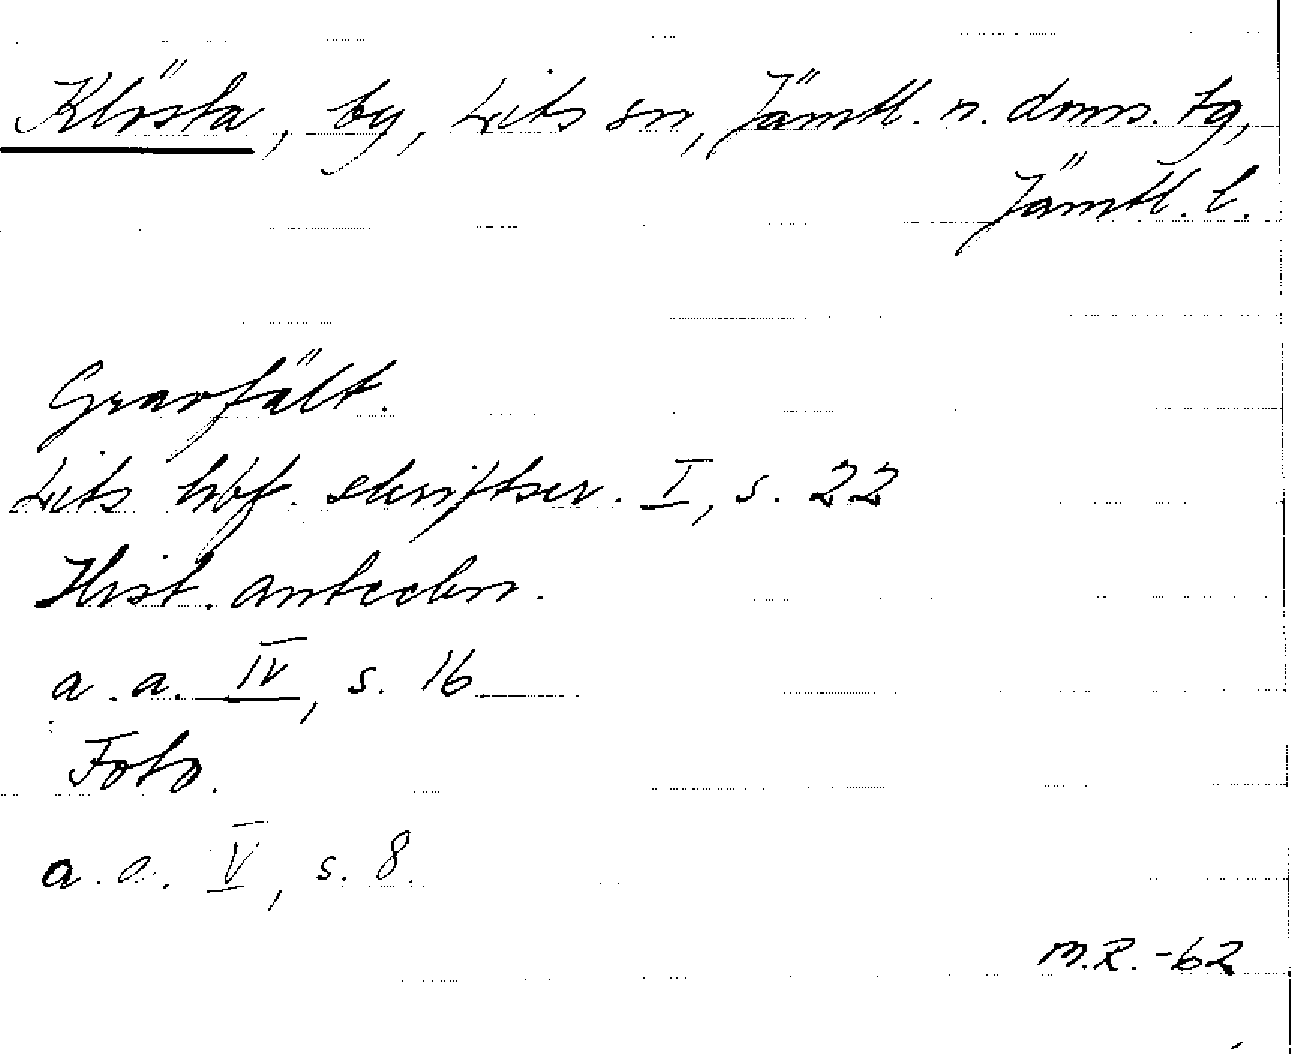 Klösta, by, Lits sn, Jämtl. n. doms. tg,
Jämtl. l.
Gravfält.
Lits hbf. skriftser. I, s. 22
Hist. anteckn.
a. a. IV, s. 16
Foto.
a. a. V, s. 8.
M.R. -62